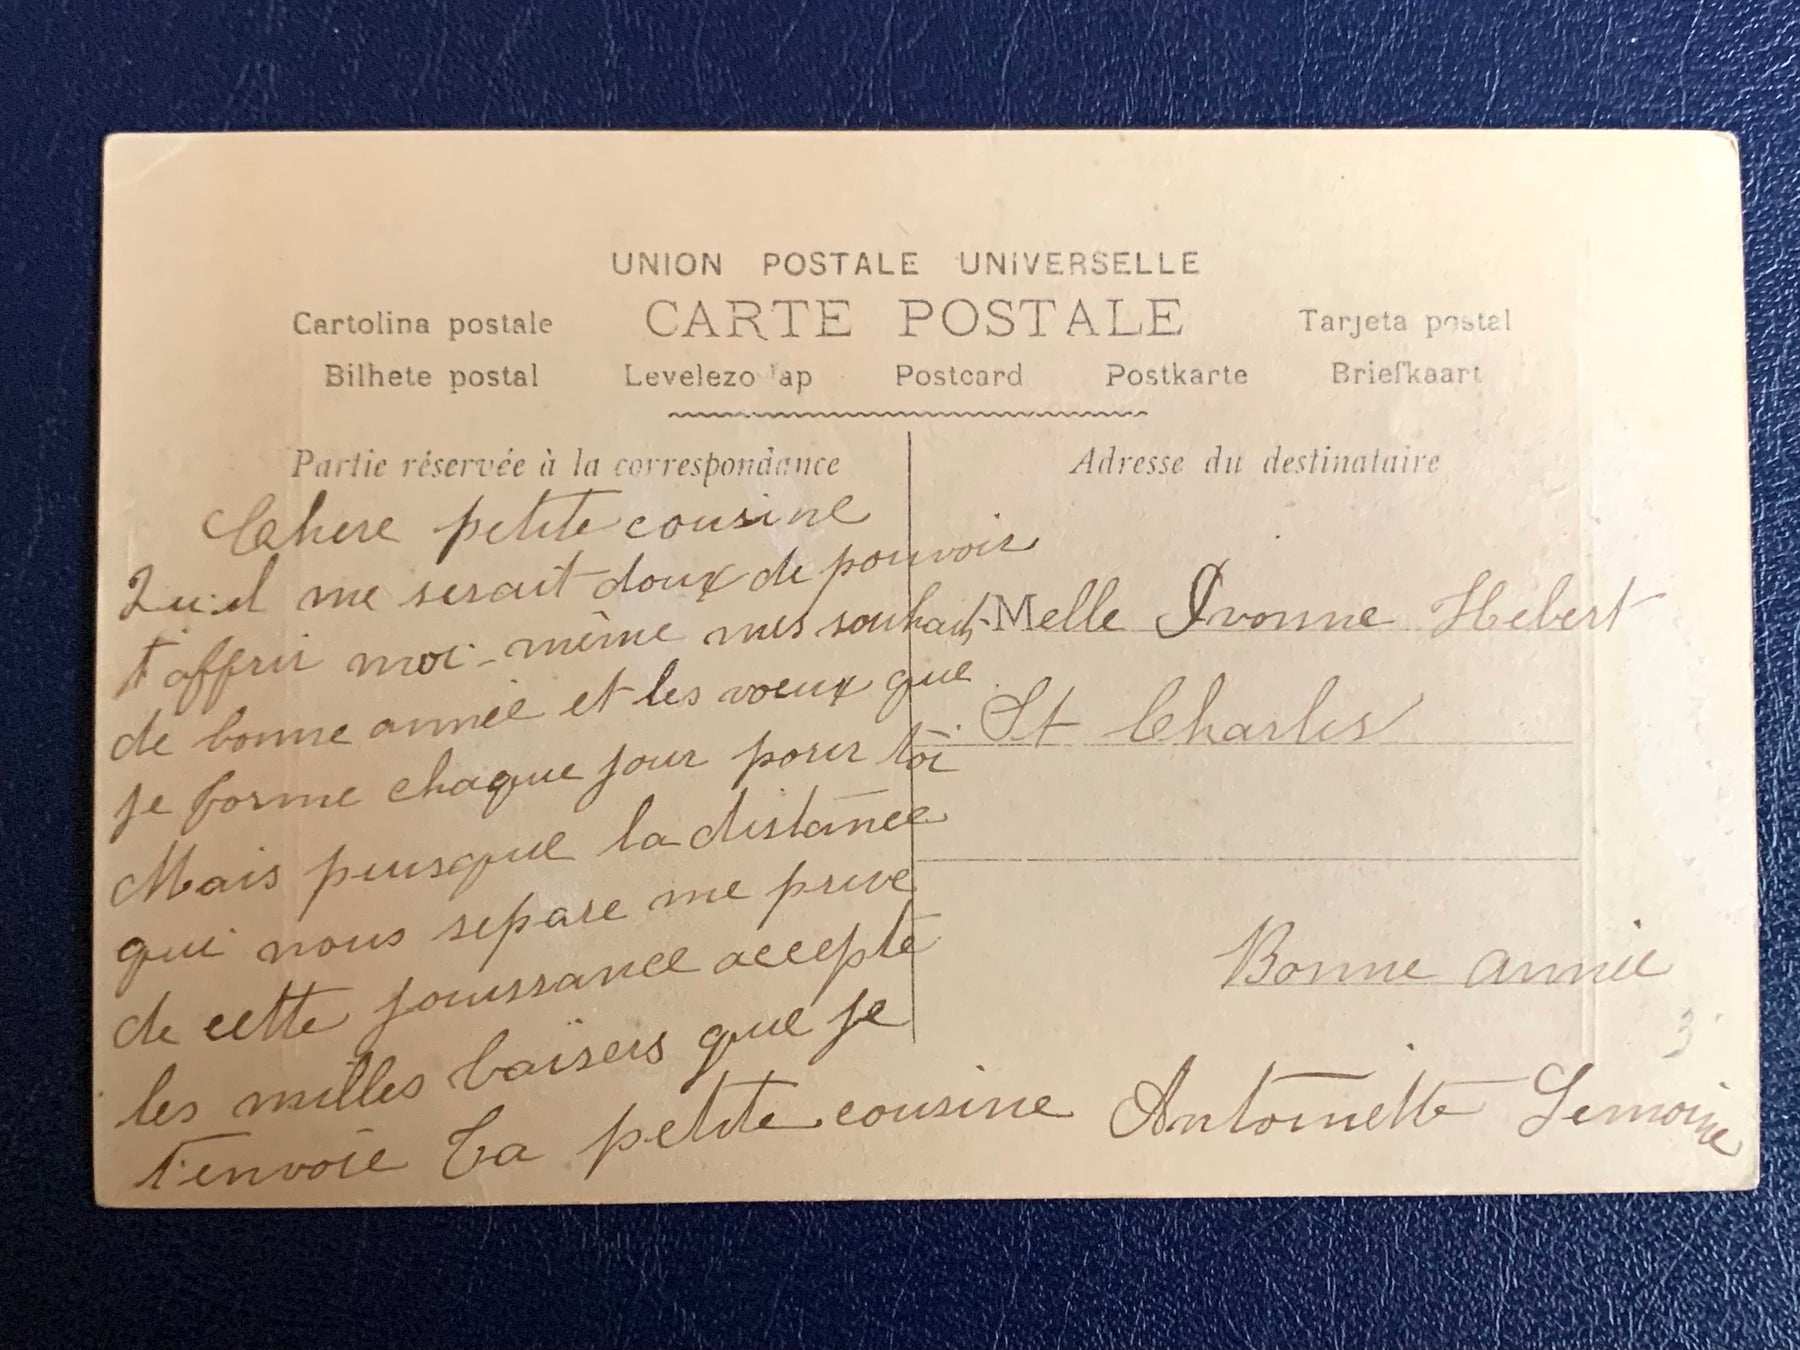 UNION POSTALE UNIVERSELLE
Cartolina postale CARTE POSTALE Tarjeta postal
Bilhete postal Levelezo lap Postcard Postkarte Briefkaart
Partie réservée à la correspondance
Chere petite cousine
Qu'il me serait doux de pouvoir
t'offrir moi-même mes souhaits
de bonne année et les voeux que
je forme chaque jour pour toi
Mais puisque la distance
qui nous separe me prive
de cette jouissance accepte
les milles baisers que je
t'envoie Ta petite cousine Antoinette Lemoine
Adresse du destinataire
Melle Yvonne Hebert
St Charles
Bonne année
3